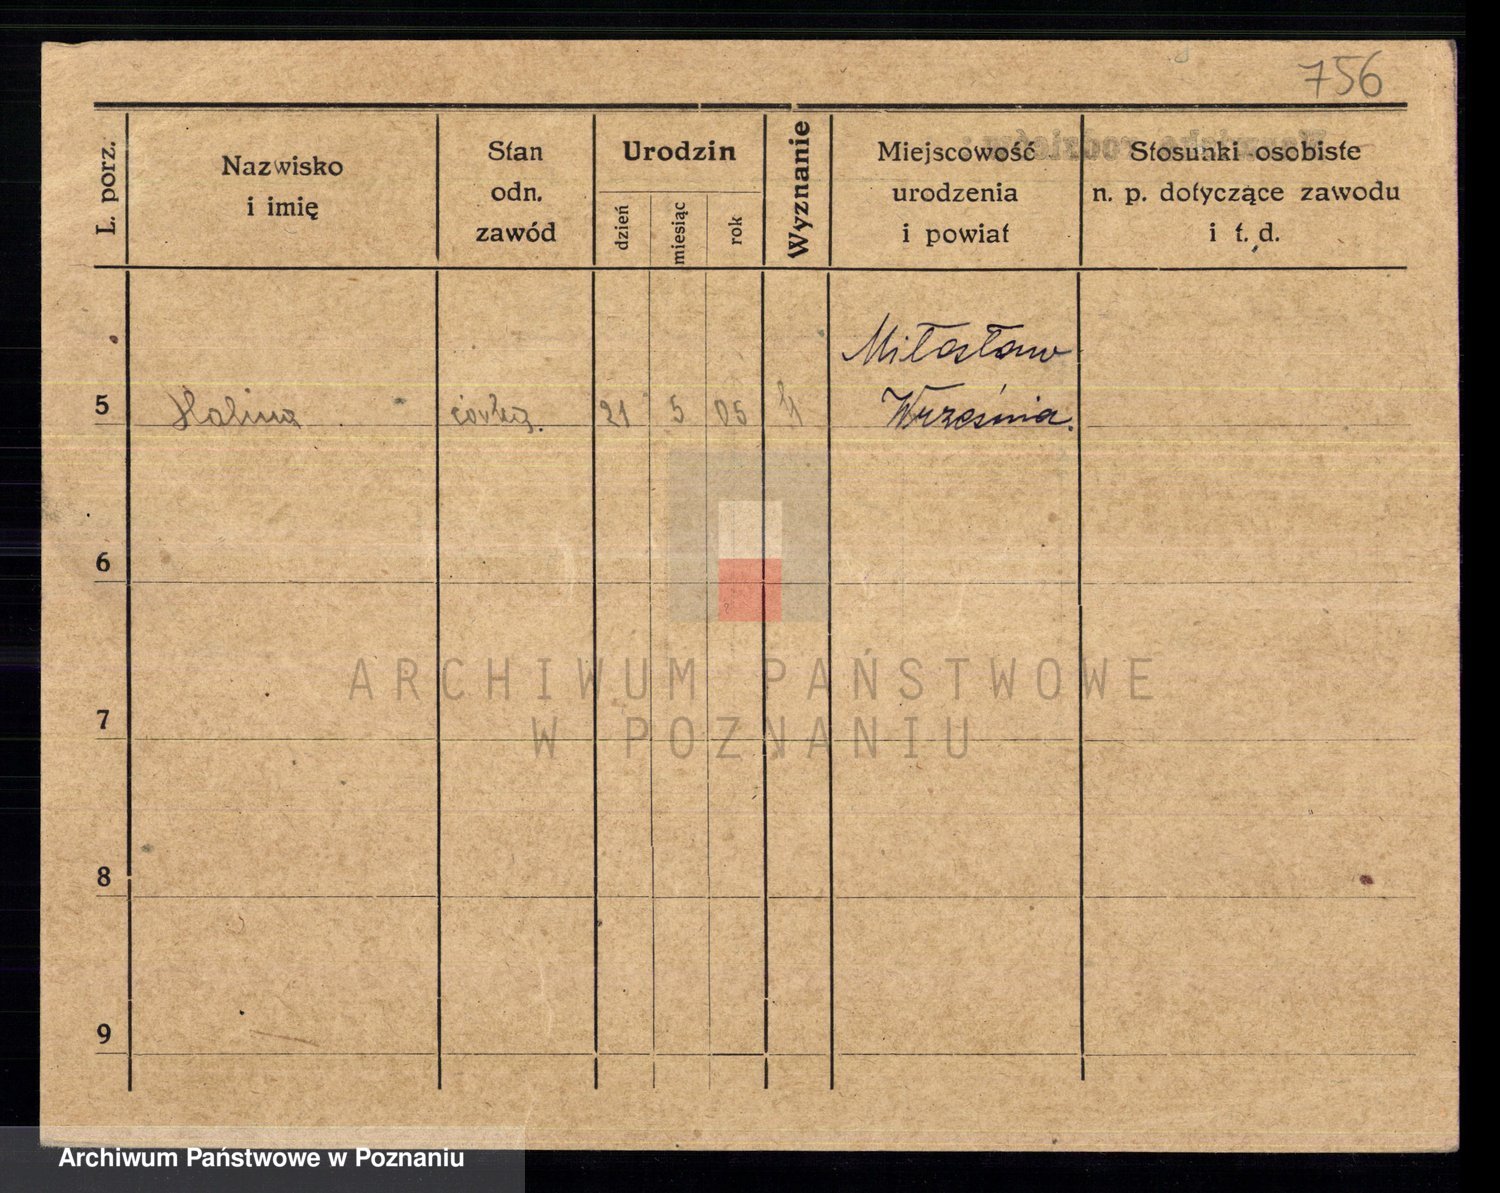 756
L. porz.
Nazwisko
i imię
Stan
odn.
zawód
Urodzin
dzień
miesiąc
rok
Wyznanie
Miejscowość
urodzenia
i powiat
Stosunki osobiste
n. p. dotyczące zawodu
i t. d.
Miłosław
5 Halina córka. 21 5 05 Września.
6
7
8
9
ARCHIWUM PAŃSTWOWE
W POZNANIU
Archiwum Państwowe w Poznaniu